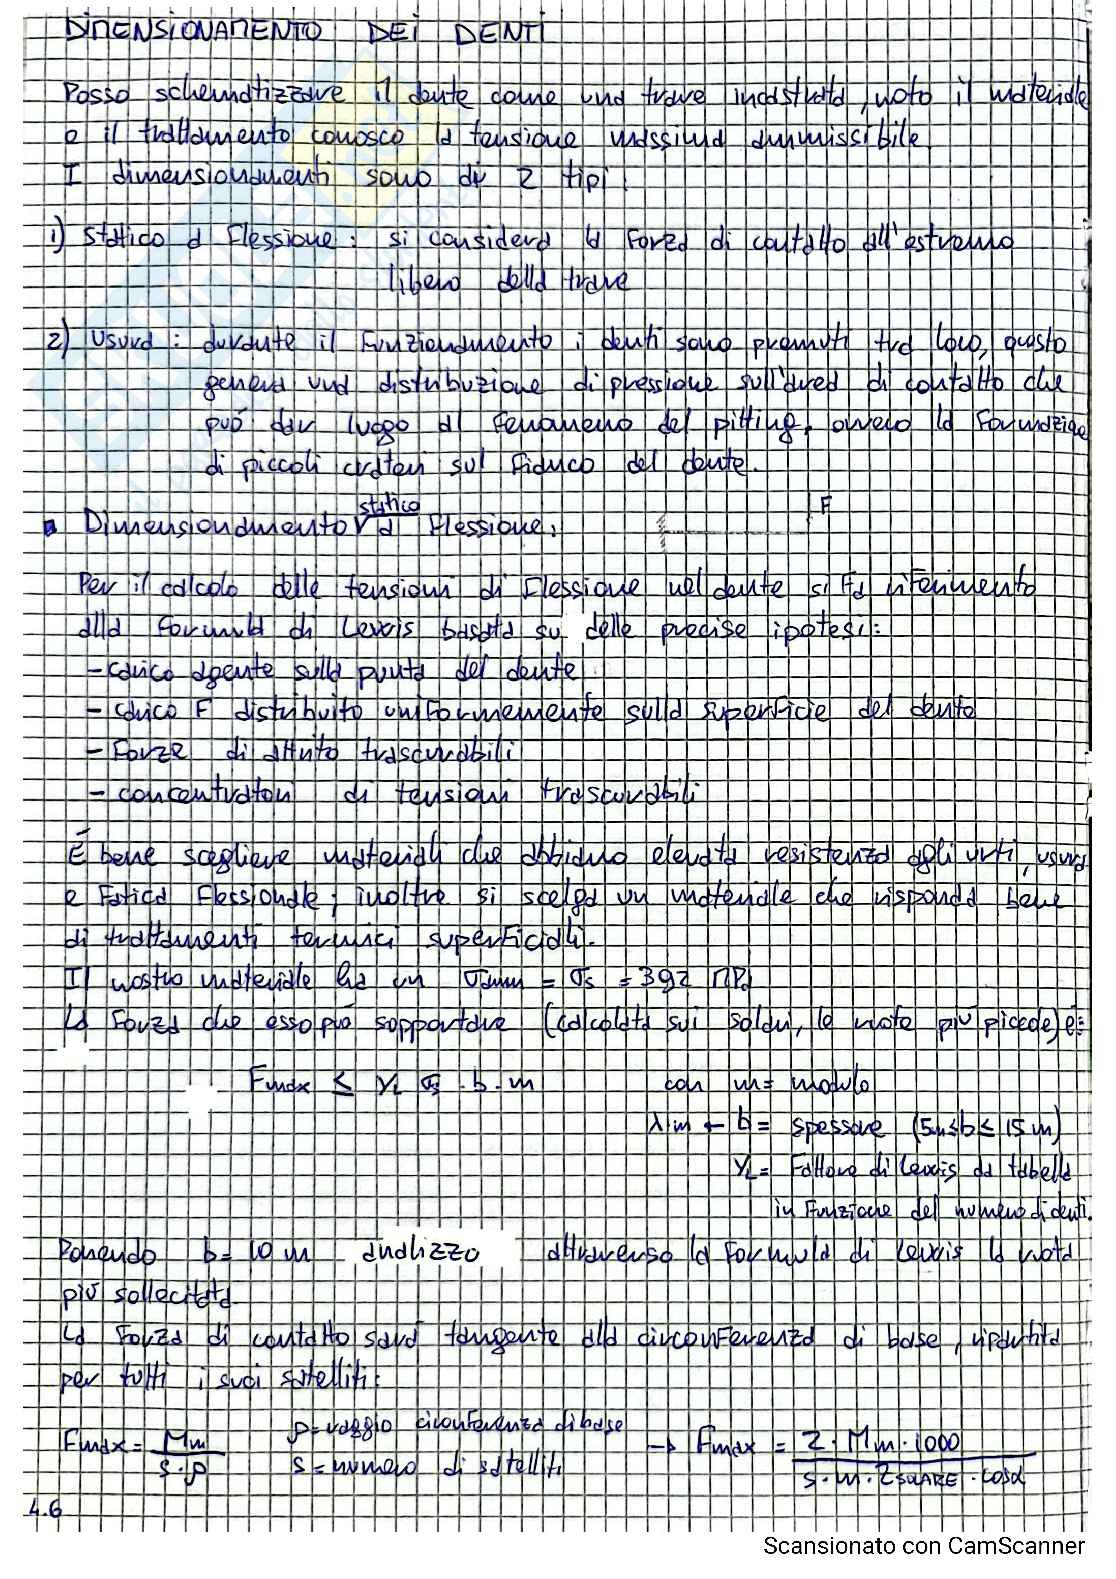 DIMENSIONAMENTO DEI DENTI
Posso schematizzare il dente come una trave incastrata, noto il materiale
e il trattamento conosco la tensione massima ammissibile.
I dimensionamenti sono di 2 tipi:
1) statico a flessione: si considera la forza di contatto all'estremo
libero della trave
2) Usura: durante il funzionamento i denti sono premuti tra loro, questo
genera una distribuzione di pressione sull'area di contatto che
può dar luogo al fenomeno del pitting, ovvero la formazione
di piccoli crateri sul fianco del dente.
statico
Dimensionamento √ a flessione:
F
Per il calcolo delle tensioni di flessione nel dente si fa riferimento
alla formula di Lewis basata su delle precise ipotesi:
- carico agente sulla punta del dente
- carico F distribuito uniformemente sulla superficie del dente
- Forze di attrito trascurabili
- concentratori di tensioni trascurabili
É bene scegliere materiali che abbiano elevata resistenza agli urti, usura
e fatica flessionale; inoltre si scelga un materiale che risponda bene
di trattamenti termici superficiali.
Il nostro materiale ha un σamm = σs = 392 MPa
La forza che esso può sopportare (calcolata sui solari, le ruote più piccole) è:
Fmax ≤ YL σs · b · m con m = modulo
λ·m ← b = spessore (5m≤b≤15m)
YL = Fattore di Lewis da tabella
in funzione del numero di denti.
Ponendo b = 10 m analizzo attraverso la formula di Lewis la ruota
più sollecitata
La forza di contatto sarà tangente alla circonferenza di base, ripartita
per tutti i suoi satelliti:
Fmax = Mm / s·ρ ρ = raggio circonferenza di base → Fmax = 2·Mm·1000 / s·m·ZSOLARE·cosα
s = numero di satelliti
4.6
Scansionato con CamScanner